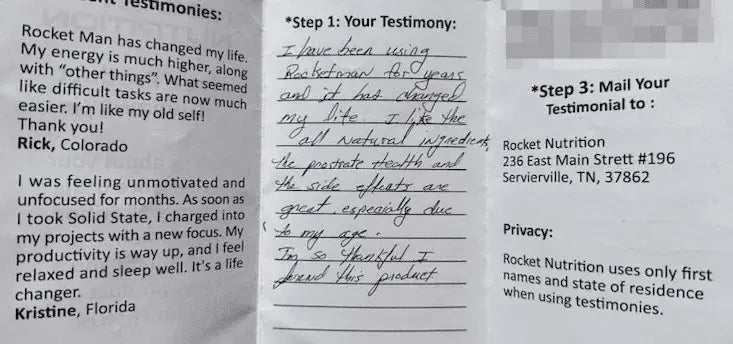 Testimonies:
Rocket Man has changed my life.
My energy is much higher, along
with “other things”. What seemed
like difficult tasks are now much
easier. I’m like my old self!
Thank you!
Rick, Colorado
I was feeling unmotivated and
unfocused for months. As soon as
I took Solid State, I charged into
my projects with a new focus. My
productivity is way up, and I feel
relaxed and sleep well. It's a life
changer.
Kristine, Florida
*Step 1: Your Testimony:
I have been using
Rocketman for years
and it has changed
my life. I like the
all Natural ingredients,
the prostrate Health and
the side effects are
great, especially due
to my age.
I'm so thankful I
found this product
*Step 3: Mail Your
Testimonial to :
Rocket Nutrition
236 East Main Strett #196
Servierville, TN, 37862
Privacy:
Rocket Nutrition uses only first
names and state of residence
when using testimonies.